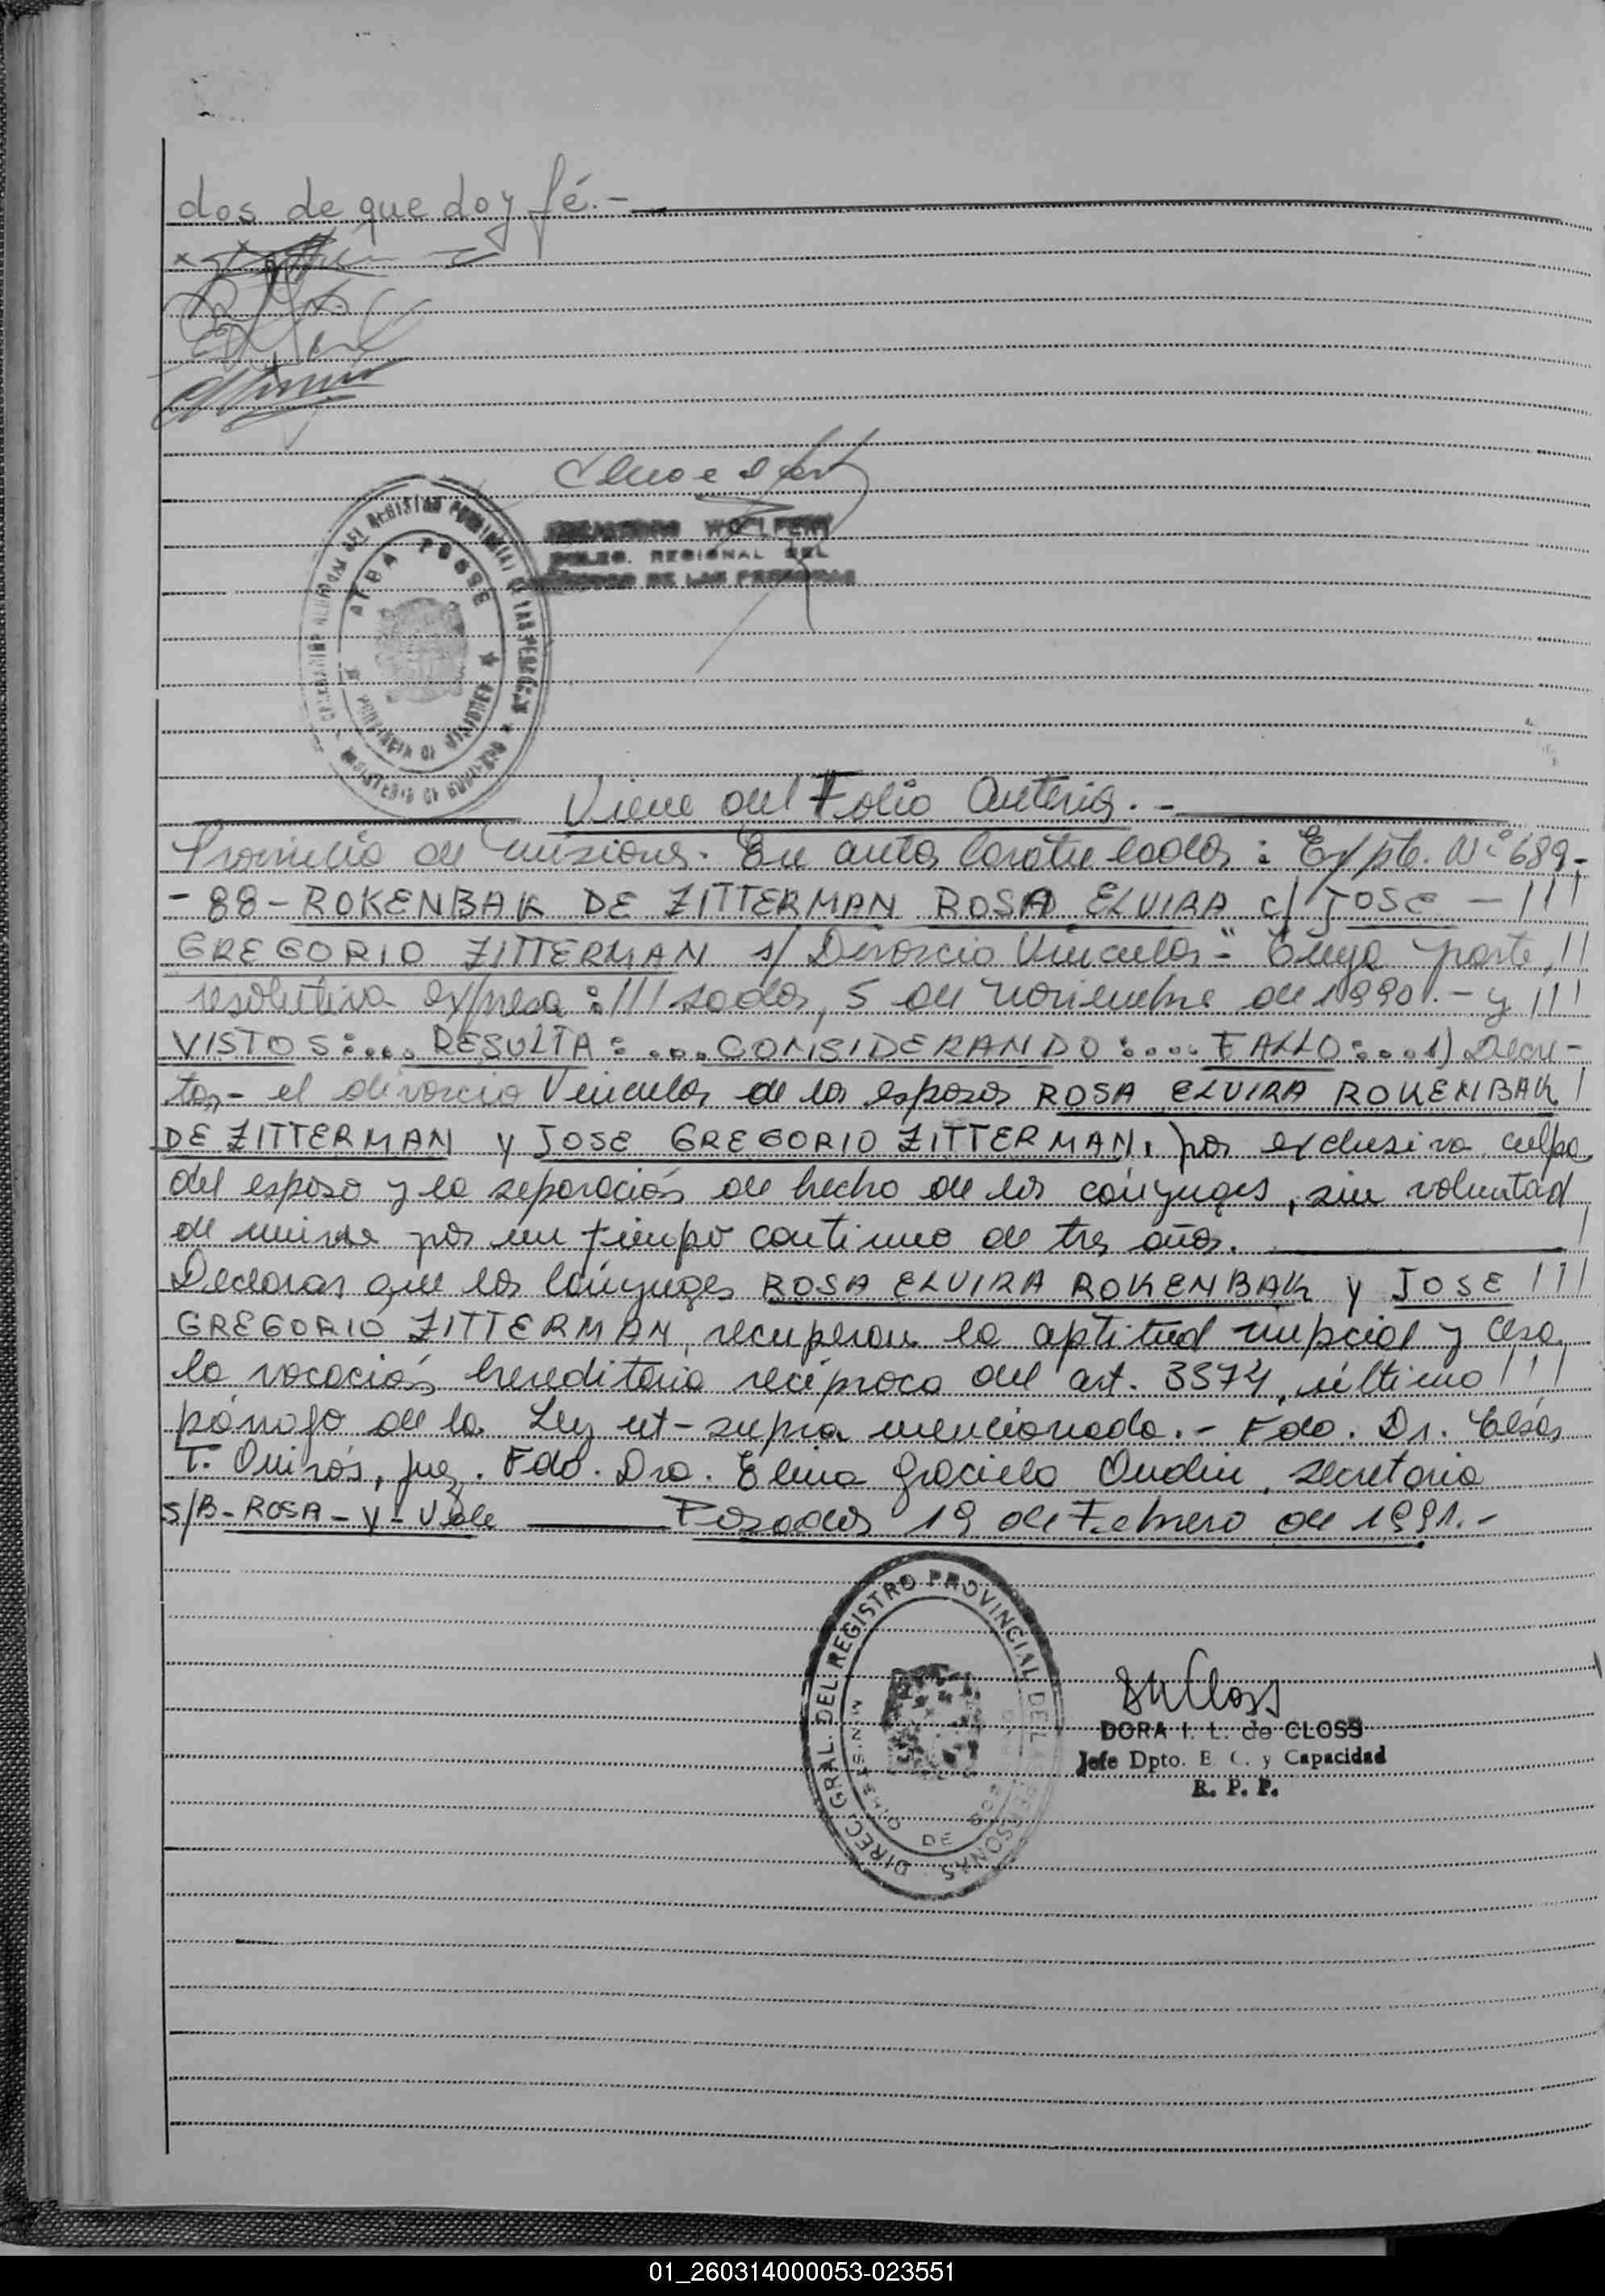 dos de que doy fé.-
WOLFERT
DELEG. REGIONAL DEL
REGISTRO DE LAS PERSONAS
ALBA POSSE
PROVINCIA DE MISIONES
Viene del Folio Anterior.-
Provincia de Misiones. En autos caratulados: Expte. Nº 689-
-88-ROKENBAK DE ZITTERMAN ROSA ELVIRA c/ JOSE -///
GREGORIO ZITTERMAN s/ Divorcio Vincular-" Cuya parte,//
resolutiva expresa:///sadas, 5 de noviembre de 1990.- y ///
VISTOS:... RESULTA: ...CONSIDERANDO:.... FALLO:...1) Decre-
tar- el divorcio Vincular de los esposos ROSA ELVIRA ROKENBAK /
DE ZITTERMAN y JOSE GREGORIO ZITTERMAN, por exclusiva culpa
del esposo y la separación de hecho de los cónyuges, sin voluntad
de unirse por un tiempo continuo de tres años. /
Declarar que los cónyuges ROSA ELVIRA ROKENBAK y JOSE ///
GREGORIO ZITTERMAN, recuperan la aptitud nupcial y cesa
la vocación hereditaria recíproca del art. 3574, último ///
párrafo de la Ley ut-supra mencionada.- Fdo. Dr. 
T. Quirós, juez. Fdo. Dra. Elina Graciela Oudin, secretaria
S/B-ROSA-V-Vale Posadas 19 de Febrero de 1991.-
DIREC. GRAL. DEL REGISTRO PROVINCIAL DE LAS PERSONAS
DORA I. L. de CLOSS
Jefe Dpto. E. C. y Capacidad
R. P. P.
01_260314000053-023551